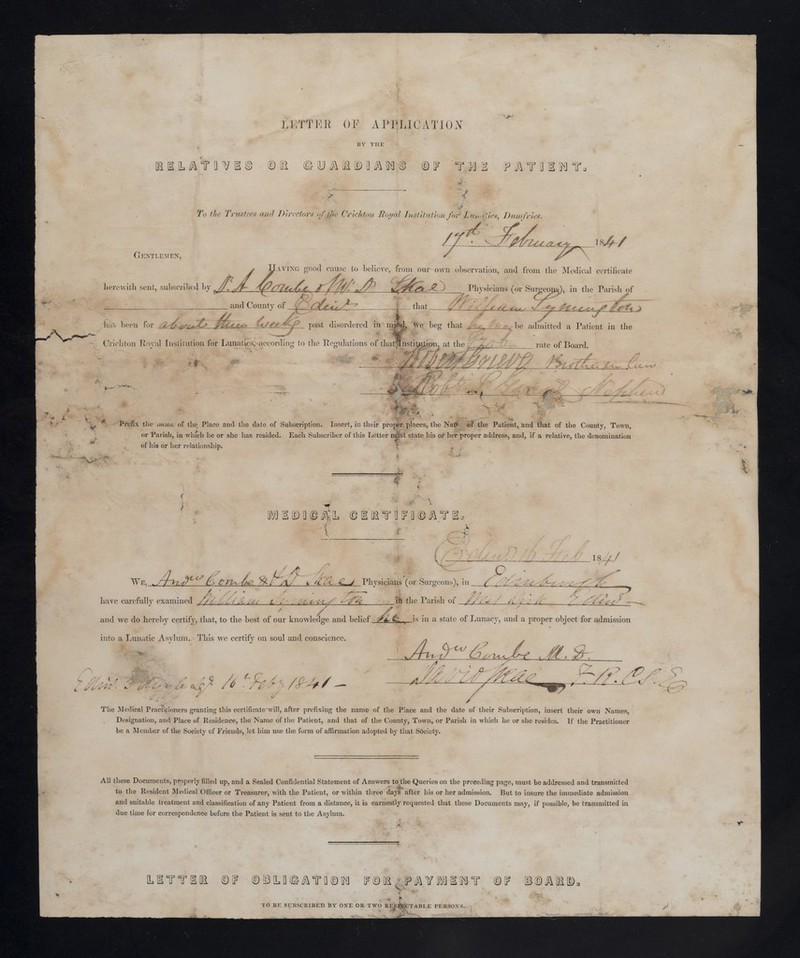 LETTER OF APPLICATION
BY THE
RELATIVES OR GUARDIANS OF THE PATIENT.
To the Trustees and Directors of the Crichton Royal Institution for Lunatics, Dumfries.
17th February 1841
GENTLEMEN,
HAVING good cause to believe, from our own observation, and from the Medical certificate
herewith sent, subscribed by Dr A Combe & Skae Physicians (or Surgeons), in the Parish of
and County of Edinr that William Symington
has been for about three weeks past disordered in mind, We beg that he be admitted a Patient in the
Crichton Royal Institution for Lunatics, according to the Regulations of that Institution, at the rate of Board.
Brother in Law
Nephew
Prefix the name of the Place and the date of Subscription. Insert, in their proper places, the Name of the Patient, and that of the County, Town,
or Parish, in which he or she has resided. Each Subscriber of this Letter must state his or her proper address, and, if a relative, the denomination
of his or her relationship.
MEDICAL CERTIFICATE.
Edinburgh 16 Feb 1841
WE, Andw Combe & D Skae Physicians (or Surgeons), in Edinburgh
have carefully examined William Symington in the Parish of West Kirk Edinr
and we do hereby certify, that, to the best of our knowledge and belief he is in a state of Lunacy, and a proper object for admission
into a Lunatic Asylum. This we certify on soul and conscience.
Andw Combe M.D.
David Skae F.R.C.S.E
16th Feby 1841 -
The Medical Practitioners granting this certificate will, after prefixing the name of the Place and the date of their Subscription, insert their own Names,
Designation, and Place of Residence, the Name of the Patient, and that of the County, Town, or Parish in which he or she resides. If the Practitioner
be a Member of the Society of Friends, let him use the form of affirmation adopted by that Society.
All these Documents, properly filled up, and a Sealed Confidential Statement of Answers to the Queries on the preceding page, must be addressed and transmitted
to the Resident Medical Officer or Treasurer, with the Patient, or within three days after his or her admission. But to insure the immediate admission
and suitable treatment and classification of any Patient from a distance, it is earnestly requested that these Documents may, if possible, be transmitted in
due time for correspondence before the Patient is sent to the Asylum.
LETTER OF OBLIGATION FOR PAYMENT OF BOARD.
TO BE SUBSCRIBED BY ONE OR TWO RESPECTABLE PERSONS.